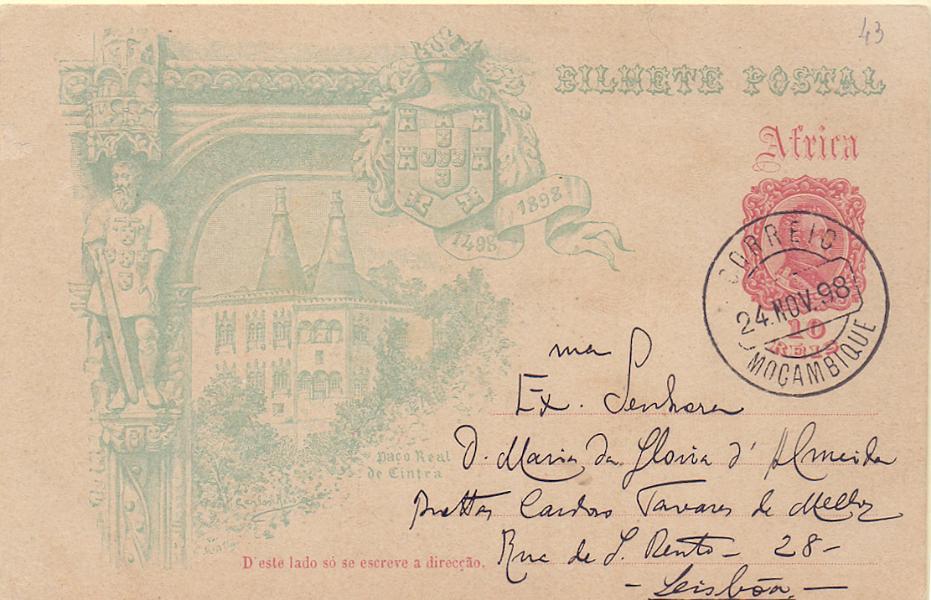 43
BILHETE POSTAL
Africa
1498 1898
CORREIO
24.NOV.98
MOÇAMBIQUE
10
REIS
Paço Real
de Cintra
ma
Ex. Senhora
D. Maria da Gloria d'Almeida
Cardoso Tavares de Mello
Rua de S. Bento - 28 -
- Lisbôa. -
D'este lado só se escreve a direcção.